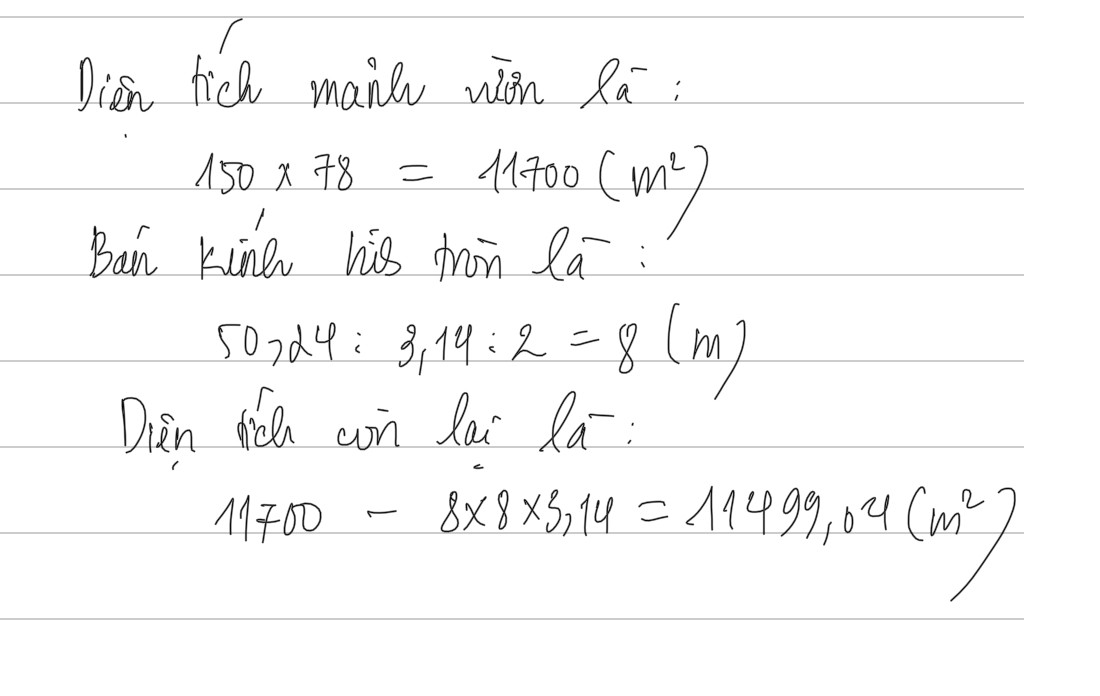 Diện tích mảnh vườn là :
150 x 78 = 11700 (m²)
Bán kính hồ tròn là :
50,24 : 3,14 : 2 = 8 (m)
Diện tích còn lại là :
11700 - 8x8x3,14 = 11499,04 (m²)